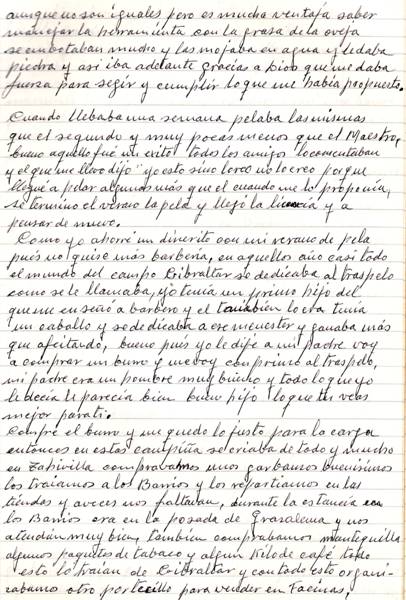 aunque no son iguales pero es mucha ventaja saber
manejar la herramienta con la grasa de la oveja
se embotaban mucho y las mojaba en agua y ledaba
piedra y asi iba adelante gracias a Dios que me daba
fuerza para segir y cumplir loque me habia propuesto.
Cuando llebaba una semana pelaba las mismas
que el segundo y muy pocas menos que el Maestro,
bueno aquello fué un exito todos los amigos lo comentaban
y el que me llevo dijo yo esto sino lo veo no lo creo porque
llegué a pelar algunas más que el cuando me lo proponia,
se termino el verano la pela y llejó la licencia y a
pensar de nuevo.
Como yo ahorré un dinerito con mi verano de pela
pués no quise más barberia, en aquellos año casi todo
el mundo del campo Gibraltar se dedicaba al traspelo
como se le llamaba, yo tenia un primo hijo del
que me enseñó a barbero y el tambien lo era tenia
un caballo y se dedicaba a ese menester y ganaba más
que afeitando, bueno pués yo le dije a mi padre voy
a comprar un burro y me voy con primo al traspelo,
mi padre era un hombre muy bueno y todo loque yo
le decia le parecia bien bueno hijo loque tu veas
mejor parati.
Compré el burro y me quedo lo justo para la carga
entonces en estas campiña se criaba de todo y mucho
en Tahivilla comprabamos unos garbansos buenisimos
los traiamos a los Barrios y los repartiamos en las
tiendas y aveces nos faltavan, durante la estancia en
los Barrios era en la posada de Grasalema y nos
atendian muy bien, tambien comprabamos mantequilla
algunos paquetes de tabaco y algun kilo de café todo
esto lo traian de Gibraltar y con todo esto organi-
zabamos otro portecillo para vender en Facinas,